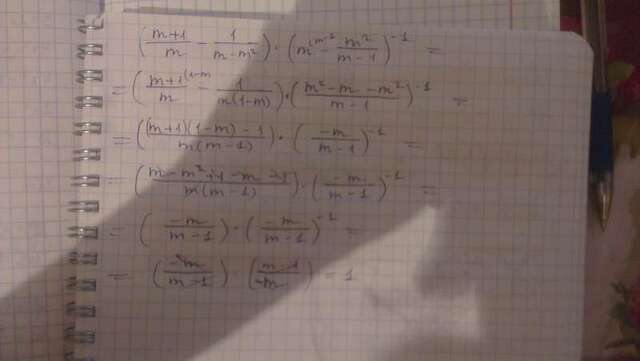 (\frac{m+1}{m} - \frac{1}{m-m^2}) · (m^{(m-1} - \frac{m^2}{m-1})^{-1} =
= (\frac{m+1}{m}^{(1-m} - \frac{1}{m(1-m)}) · (\frac{m^2-m-m^2}{m-1})^{-1} =
= (\frac{(m+1)(1-m)-1}{m(m-1)}) · (\frac{-m}{m-1})^{-1} =
= (\frac{m-m^2+1-m-1}{m(m-1)}) · (\frac{-m}{m-1})^{-1} =
= (\frac{-m}{m-1}) · (\frac{-m}{m-1})^{-1} =
= (\frac{-m}{m-1}) · (\frac{m-1}{-m}) = 1